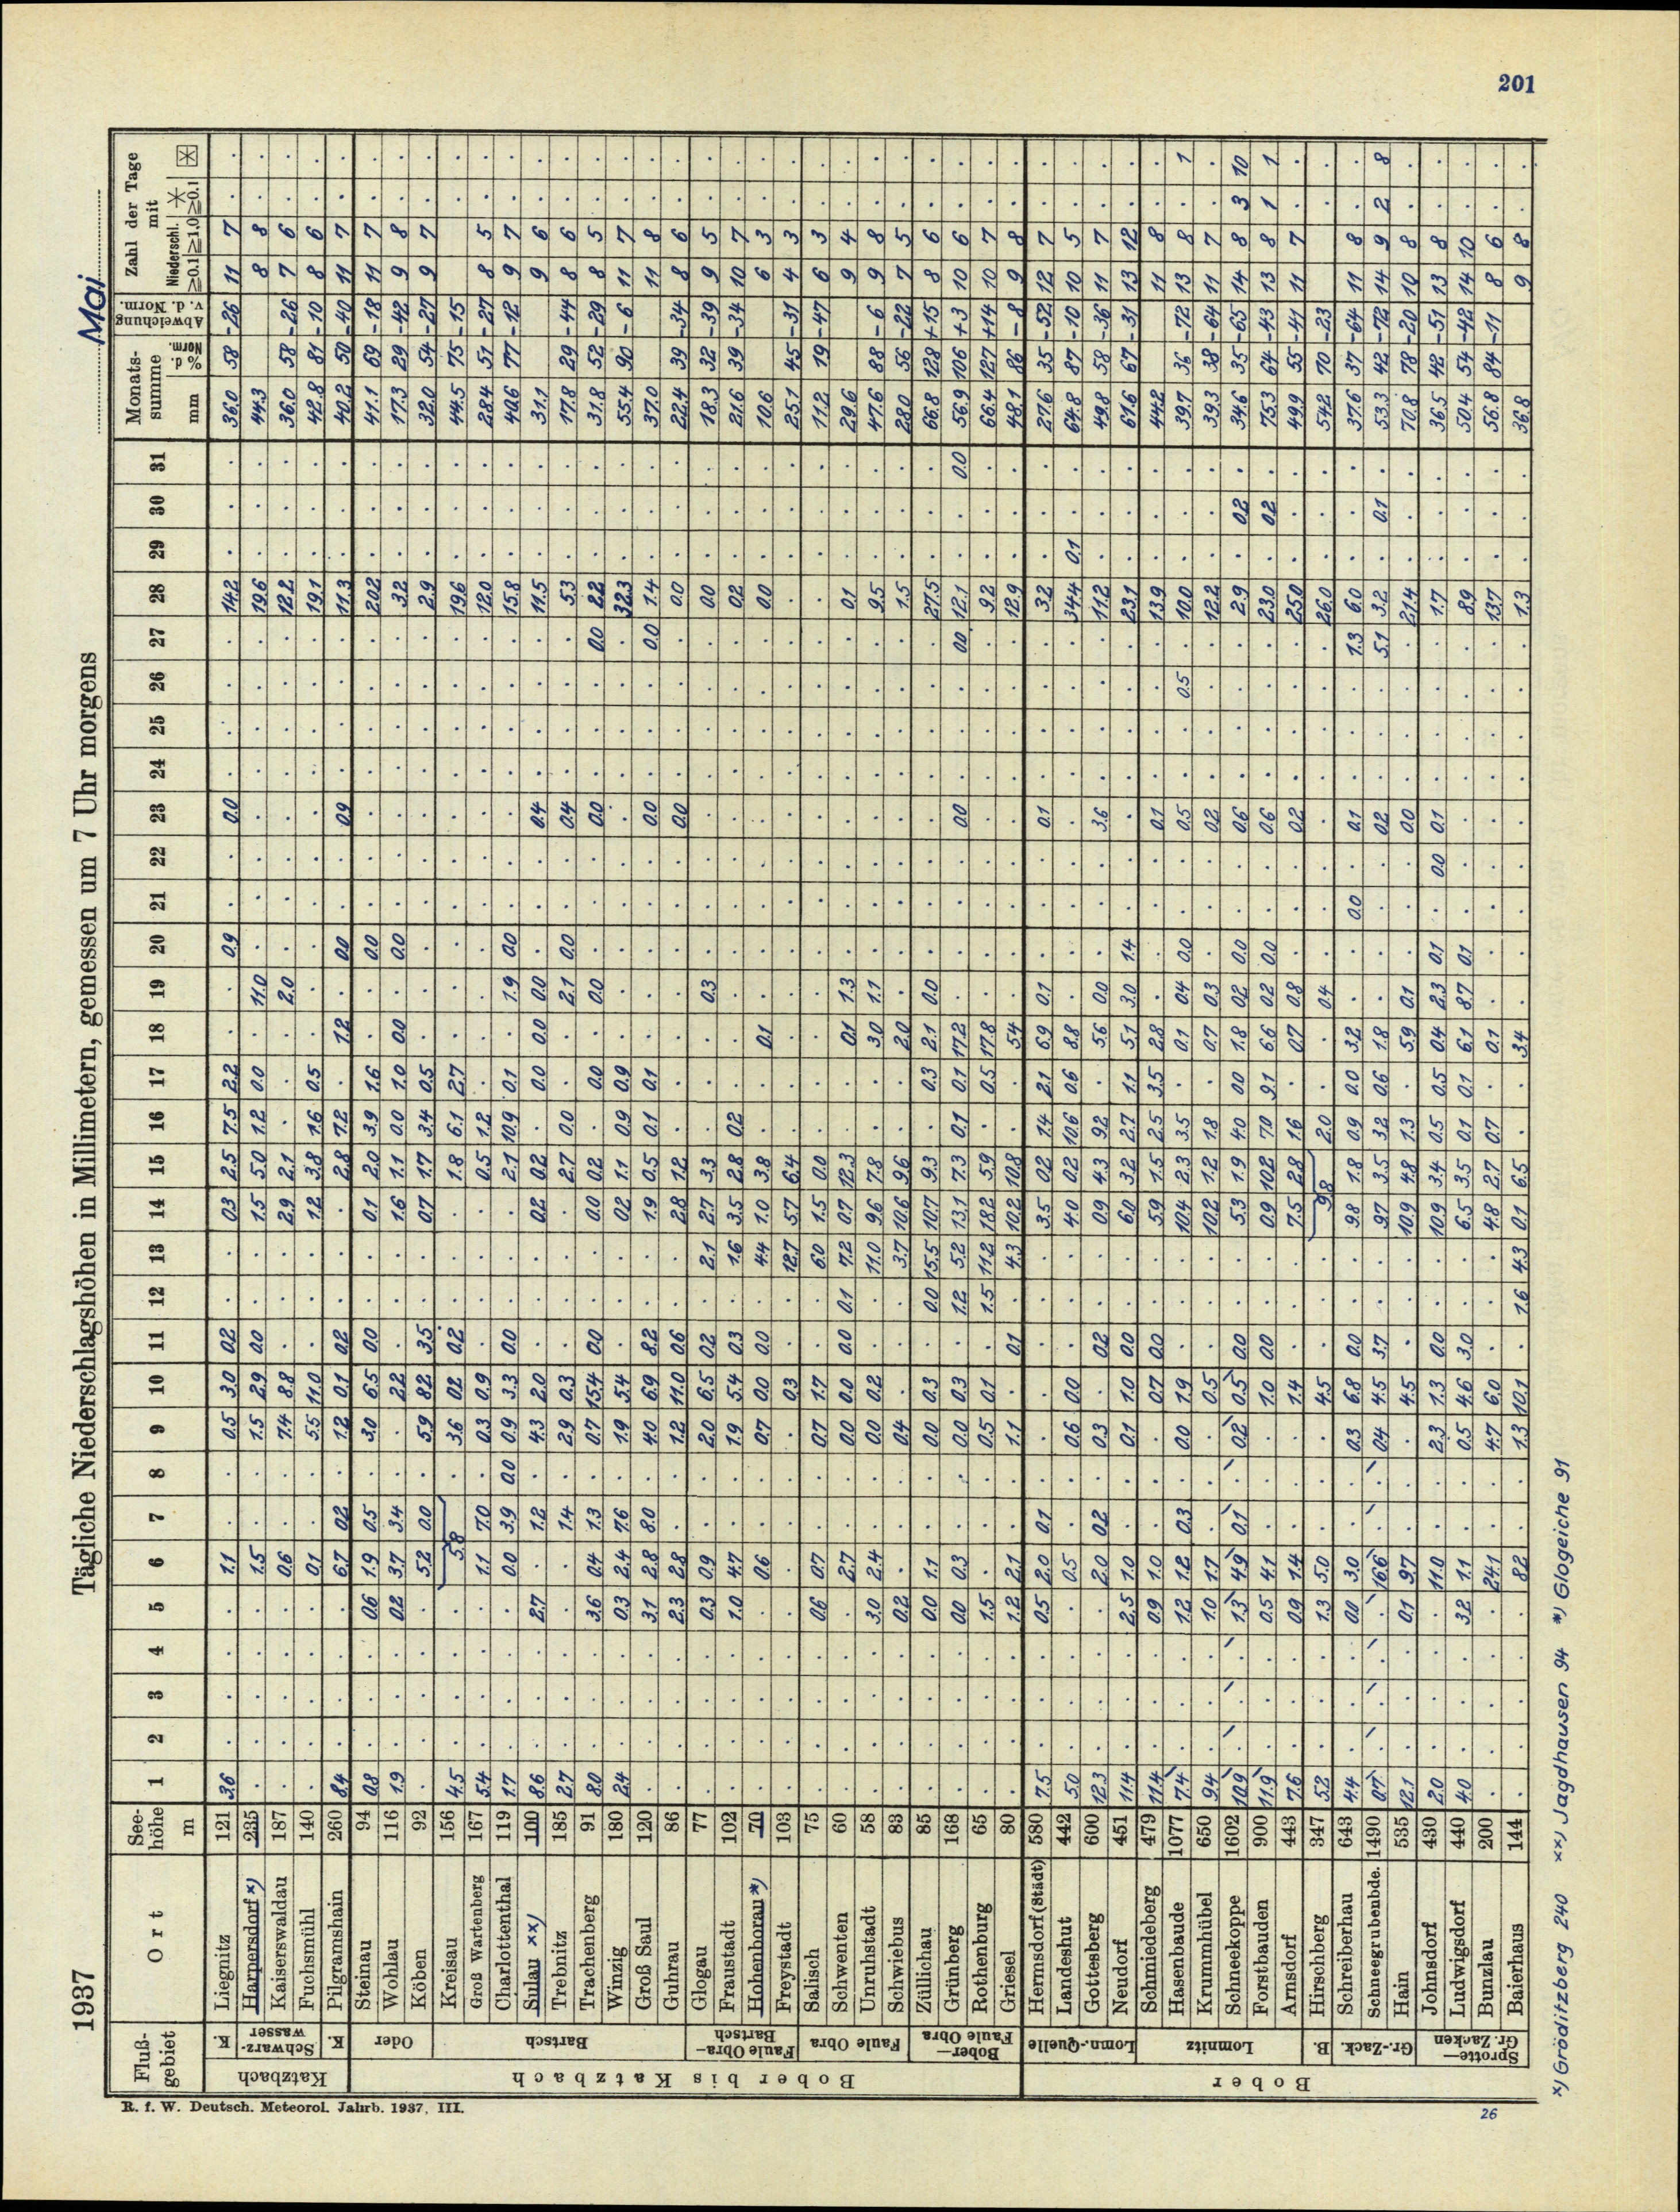 201
1937 Tägliche Niederschlagshöhen in Millimetern, gemessen um 7 Uhr morgens Mai
Fluß-gebiet Ort Seehöhe m 1 2 3 4 5 6 7 8 9 10 11 12 13 14 15 16 17 18 19 20 21 22 23 24 25 26 27 28 29 30 31 Monatssumme mm % d. Norm. Abweichung v. d. Norm. Zahl der Tage mit Niederschl. ≧0.1 ≧1.0 ≧0.1
Katzbach
K. Liegnitz 121 3.6 . . . . 1.1 . . 0.5 3.0 0.2 . . 0.3 2.5 7.5 2.2 . . 0.9 . . 0.0 . . . . 14.2 . . . 36.0 58 -26 11 7 . .
Schwarz-wasser
Harpersdorf x) 235 . . . . . 1.5 . . 1.5 2.9 0.0 . . 1.5 5.0 1.2 0.0 . 11.0 . . . . . . . . 19.6 . . . 44.3 8 8 . .
Kaiserswaldau 187 . . . . . 0.6 . . 7.4 8.8 . . . 2.9 2.1 . . . 2.0 . . . . . . . . 12.2 . . . 36.0 58 -26 7 6 . .
Fuchsmühl 140 . . . . . 0.1 . . 5.5 11.0 . . . 1.2 3.8 1.6 0.5 . . . . . . . . . . 19.1 . . . 42.8 81 -10 8 6 . .
K. Pilgramshain 260 8.4 . . . . 6.7 0.2 . 1.2 0.1 0.2 . . . 2.8 7.2 . 1.2 . 0.0 . . 0.9 . . . . 11.3 . . . 40.2 50 -40 11 7 . .
Bober bis Katzbach
Oder
Steinau 94 0.8 . . . 0.6 1.9 0.5 . 3.0 6.5 0.0 . . 0.1 2.0 3.9 1.6 . . 0.0 . . . . . . . 20.2 . . . 41.1 69 -18 11 7 . .
Wohlau 116 1.9 . . . 0.2 3.7 3.4 . . 2.2 . . . 1.6 1.1 0.0 1.0 0.0 . 0.0 . . . . . . . 3.2 . . . 17.3 29 -42 9 8 . .
Köben 92 . . . . . 5.2 0.0 . 5.9 8.2 3.5 . . 0.7 1.7 3.4 0.5 . . . . . . . . . . 2.9 . . . 32.0 54 -27 9 7 . .
Bartsch
Kreisau 156 4.5 . . . . 5.8 . 3.6 0.2 0.2 . . . 1.8 6.1 2.7 . . . . . . . . . . 19.6 . . . 44.5 75 -15 . .
Groß Wartenberg 167 5.4 . . . . 1.1 7.0 . 0.3 0.9 . . . . 0.5 1.2 . . . . . . . . . . . 12.0 . . . 28.4 51 -27 8 5 . .
Charlottenthal 119 1.7 . . . . 0.0 3.9 0.0 0.9 3.3 0.0 . . . 2.1 10.9 0.1 . 1.9 0.0 . . . . . . . 15.8 . . . 40.6 77 -12 9 7 . .
Sulau xx) 100 8.6 . . . 2.7 . 1.2 . 4.3 2.0 . . . 0.2 0.2 . 0.0 0.0 0.0 . . . 0.4 . . . . 11.5 . . . 31.1 9 6 . .
Trebnitz 185 2.7 . . . . . 1.4 . 2.9 0.3 . . . . 2.7 0.0 . . 2.1 0.0 . . 0.4 . . . . 5.3 . . . 17.8 29 -44 8 6 . .
Trachenberg 91 8.0 . . . 3.6 0.4 1.3 . 0.7 15.4 0.0 . . 0.0 0.2 . 0.0 . 0.0 . . . 0.0 . . . 0.0 2.2 . . . 31.8 52 -29 8 5 . .
Winzig 180 2.4 . . . 0.3 2.4 7.6 . 1.9 5.4 . . . 0.2 1.1 0.9 0.9 . . . . . . . . . . 32.3 . . . 55.4 90 -6 11 7 . .
Groß Saul 120 . . . . 3.1 2.8 8.0 . 4.0 6.9 8.2 . . 1.9 0.5 0.1 0.1 . . . . . 0.0 . . . 0.0 1.4 . . . 37.0 11 8 . .
Guhrau 86 . . . . 2.3 2.8 . . 1.2 11.0 0.6 . . 2.8 1.2 . . . . . . . 0.0 . . . . 0.0 . . . 22.4 39 -34 8 6 . .
Faule Obra–Bartsch
Glogau 77 . . . . 0.3 0.9 . . 2.0 6.5 0.2 . 2.1 2.7 3.3 . . . 0.3 . . . . . . . . 0.0 . . . 18.3 32 -39 9 5 . .
Fraustadt 102 . . . . 1.0 4.7 . . 1.9 5.4 0.3 . 1.6 3.5 2.8 0.2 . . . . . . . . . . . 0.2 . . . 21.6 39 -34 10 7 . .
Hohenborau *) 70 . . . . . 0.6 . . 0.7 0.0 0.0 . 4.4 1.0 3.8 . . 0.1 . . . . . . . . . 0.0 . . . 10.6 6 3 . .
Freystadt 103 . . . . . . . . . 0.3 . . 12.7 5.7 6.4 . . . . . . . . . . . . . . . . 25.1 45 -31 4 3 . .
Faule Obra
Salisch 75 . . . . 0.6 0.7 . . 0.7 1.7 . . 6.0 1.5 0.0 . . . . . . . . . . . . . . . . 11.2 19 -47 6 3 . .
Schwenten 60 . . . . . 2.7 . . 0.0 0.0 0.0 0.1 7.2 0.7 12.3 . . 0.1 1.3 . . . . . . . . 0.1 . . . 29.6 9 4 . .
Faule Obra
Unruhstadt 58 . . . . 3.0 2.4 . . 0.0 0.2 . . 11.0 9.6 7.8 . . 3.0 1.1 . . . . . . . . 9.5 . . . 47.6 88 -6 9 8 . .
Schwiebus 83 . . . . 0.2 . . . 0.4 . . . 3.7 10.6 9.6 . . 2.0 . . . . . . . . . 1.5 . . . 28.0 56 -22 7 5 . .
Bober–Faule Obra
Züllichau 85 . . . . 0.0 1.1 . . 0.0 0.3 . 0.0 15.5 10.7 9.3 . 0.3 2.1 0.0 . . . . . . . . 27.5 . . . 66.8 128 +15 8 6 . .
Grünberg 168 . . . . 0.0 0.3 . . 0.0 0.3 . 1.2 5.2 13.1 7.3 0.1 0.1 17.2 . . . . 0.0 . . . 0.0 12.1 . . 0.0 56.9 106 +3 10 6 . .
Rothenburg 65 . . . . 1.5 . . . 0.5 0.1 . 1.5 11.2 18.2 5.9 . 0.5 17.8 . . . . . . . . . 9.2 . . . 66.4 127 +14 10 7 . .
Griesel 80 . . . . 1.2 2.1 . . 1.1 . 0.1 . 4.3 10.2 10.8 . . 5.4 . . . . . . . . . 12.9 . . . 48.1 86 -8 9 8 . .
Bober
Lomn.-Quelle
Hermsdorf (Städt) 580 7.5 . . . 0.5 2.0 0.1 . . . . . . 3.5 0.2 1.4 2.1 6.9 0.1 . . . 0.1 . . . . 3.2 . . . 27.6 35 -52 12 7 . .
Landeshut 442 5.0 . . . . 0.5 . . 0.6 0.0 . . . 4.0 0.2 10.6 0.6 8.8 . . . . . . . . . 34.4 0.1 . . 64.8 87 -10 10 5 . .
Gottesberg 600 12.3 . . . . 2.0 0.2 . 0.3 . 0.2 . . 0.9 4.3 9.2 . 5.6 0.0 . . . 3.6 . . . . 11.2 . . . 49.8 58 -36 11 7 . .
Neudorf 451 11.4 . . . 2.5 1.0 . . 0.1 1.0 0.0 . . 6.0 3.2 2.7 1.1 5.1 3.0 1.4 . . . . . . . 23.1 . . . 61.6 67 -31 13 12 . .
Lomnitz
Schmiedeberg 479 11.4 . . . 0.9 1.0 . . . 0.7 0.0 . . 5.9 1.5 2.5 3.5 2.8 . . . . 0.1 . . . . 13.9 . . . 44.2 11 8 . .
Hasenbaude 1077 7.4 . . . 1.2 1.2 0.3 . 0.0 1.9 . . . 10.4 2.3 3.5 . 0.1 0.4 0.0 . . 0.5 . . 0.5 . 10.0 . . . 39.7 36 -72 13 8 . 1
Krummhübel 650 9.4 . . . 1.0 1.7 . . . 0.5 . . . 10.2 1.2 1.8 . 0.7 0.3 . . . 0.2 . . . . 12.2 . . . 39.3 38 -64 11 7 . .
Schneekoppe 1602 10.9 . . . 1.3 4.9 0.1 . 0.2 0.5 0.0 . . 5.3 1.9 4.0 0.0 1.8 0.2 0.0 . . 0.6 . . . . 2.9 . 0.2 . 34.6 35 -65 14 8 3 10
Forstbauden 900 11.9 . . . 0.5 4.1 . . . 1.0 0.0 . . 0.9 10.2 7.0 9.1 6.6 0.2 0.0 . . 0.6 . . . . 23.0 . 0.2 . 75.3 64 -43 13 8 1 1
Arnsdorf 443 7.6 . . . 0.9 1.4 . . . 1.4 . . . 7.5 2.8 1.6 . 0.7 0.8 . . . 0.2 . . . . 25.0 . . . 49.9 55 -41 11 7 . .
B. Hirschberg 347 5.2 . . . 1.3 5.0 . . . 4.5 . . . 9.8 2.0 . . 0.4 . . . . . . . . 26.0 . . . 54.2 70 -23 . .
Gr.-Zack.
Schreiberhau 643 4.4 . . . 0.0 3.0 . . 0.3 6.8 0.0 . . 9.8 1.8 0.9 0.0 3.2 . . 0.0 . 0.1 . . . 1.3 6.0 . . . 37.6 37 -64 11 8 . .
Schneegrubenbde. 1490 0.7 . . . . 16.6 . . 0.4 4.5 3.7 . . 9.7 3.5 3.2 0.6 1.8 . . . . 0.2 . . . 5.1 3.2 . 0.1 . 53.3 42 -72 14 9 2 8
Hain 535 12.1 . . . 0.1 9.7 . . . 4.5 . . . 10.9 4.8 1.3 . 5.9 0.1 . . . 0.0 . . . . 21.4 . . . 70.8 78 -20 10 8 . .
Sprotte–Gr. Zacken
Johnsdorf 430 2.0 . . . . 11.0 . . 2.3 1.3 0.0 . . 10.9 3.4 0.5 0.5 0.4 2.3 0.1 . 0.0 0.1 . . . . 1.7 . . . 36.5 42 -51 13 8 . .
Ludwigsdorf 440 4.0 . . . 3.2 1.1 . . 0.5 4.6 3.0 . . 6.5 3.5 0.1 0.1 6.1 8.7 0.1 . . . . . . . 8.9 . . . 50.4 54 -42 14 10 . .
Bunzlau 200 . . . . . 24.1 . . 4.7 6.0 . . . 4.8 2.7 0.7 . 0.1 . . . . . . . . . 13.7 . . . 56.8 84 -11 8 6 . .
Baierhaus 144 . . . . . 8.2 . . 1.3 10.1 . 1.6 4.3 0.1 6.5 . . 3.4 . . . . . . . . . 1.3 . . . 36.8 9 8 . .
R. f. W. Deutsch. Meteorol. Jahrb. 1937, III. 26
x) Gröditzberg 240 xx) Jagdhausen 94 *) Glogeiche 91